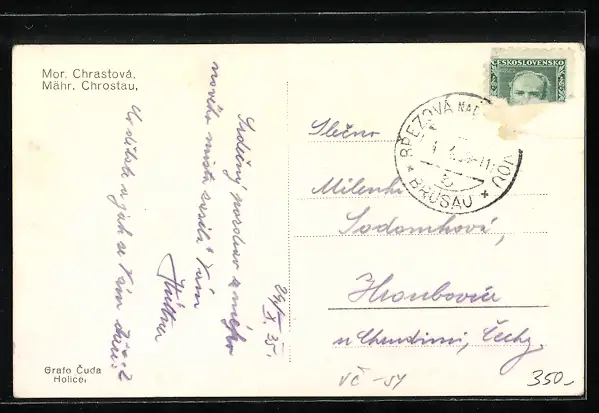 Mor. Chrastová,
Mähr. Chrostau,
Srdečný pozdrav z mého
nového místa zasílá Vám
Co děláte a jak se Vám daří?
24/X. 35.
Grafo Čuda
Holice,
ČESKOSLOVENSKO
BŘEZOVÁ NAD
BRÜSAU
Slečno
Milenki
Sodomkové,
Hroubovice
u Chrudimi, Čechy.
VČ - SY
350,-